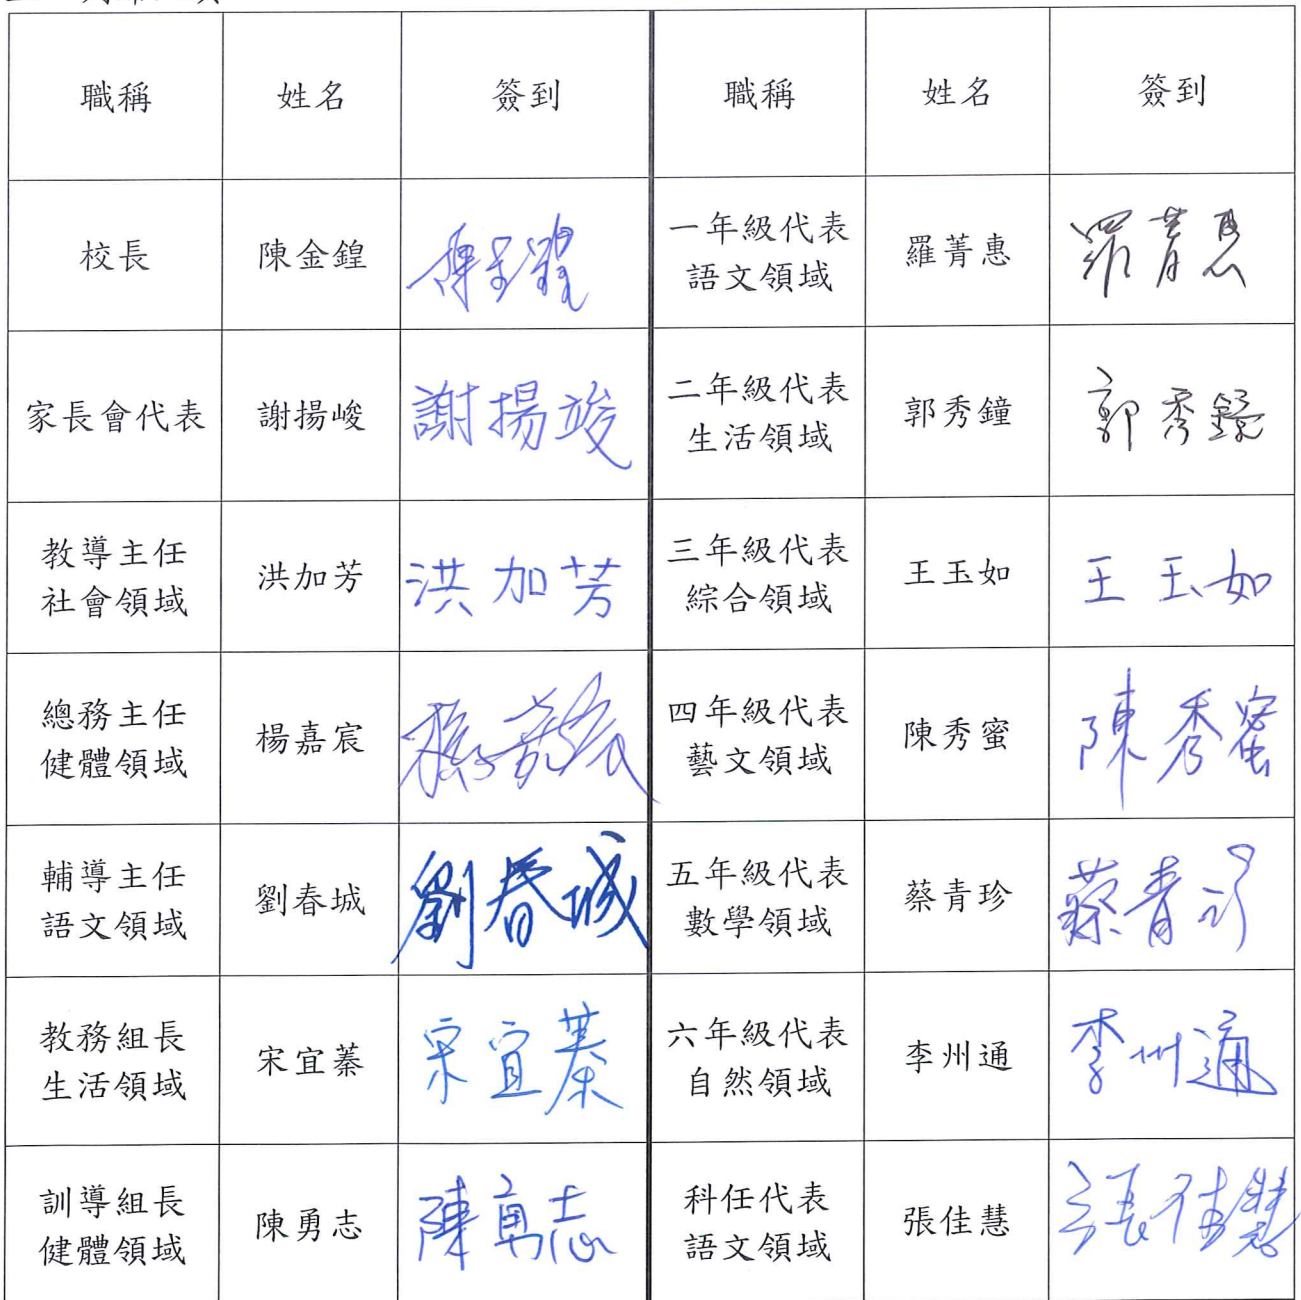 職稱 姓名 簽到 職稱 姓名 簽到
校長 陳金鍠 陳金鍠 一年級代表 語文領域 羅菁惠 羅菁惠
家長會代表 謝揚峻 謝揚竣 二年級代表 生活領域 郭秀鐘 郭秀鐘
教導主任 社會領域 洪加芳 洪加芳 三年級代表 綜合領域 王玉如 王玉如
總務主任 健體領域 楊嘉宸 楊嘉宸 四年級代表 藝文領域 陳秀蜜 陳秀蜜
輔導主任 語文領域 劉春城 劉春城 五年級代表 數學領域 蔡青珍 蔡青珍
教務組長 生活領域 宋宜蓁 宋宜蓁 六年級代表 自然領域 李州通 李州通
訓導組長 健體領域 陳勇志 陳勇志 科任代表 語文領域 張佳慧 張佳慧